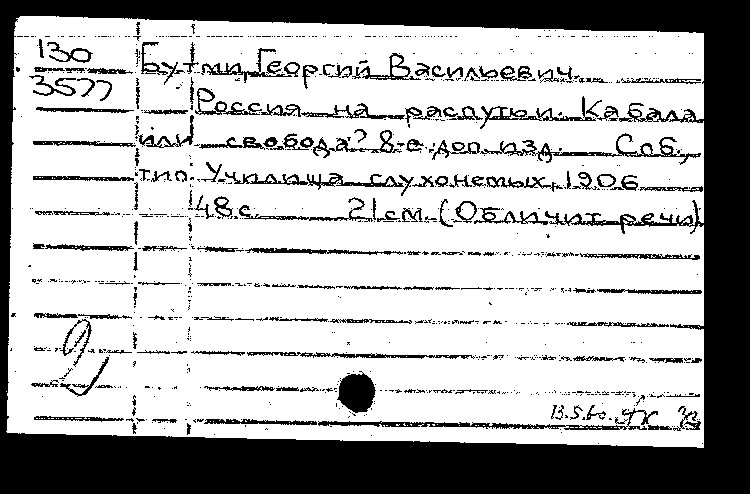 130
3577
Бутми, Георгий Васильевич.
Россия на распутьи. Кабала
или свобода? 8-е доп. изд. Спб.,
тип. Училища глухонемых, 1906
48 с. 21 см. (Обличит. речи)
2
13.5.60.